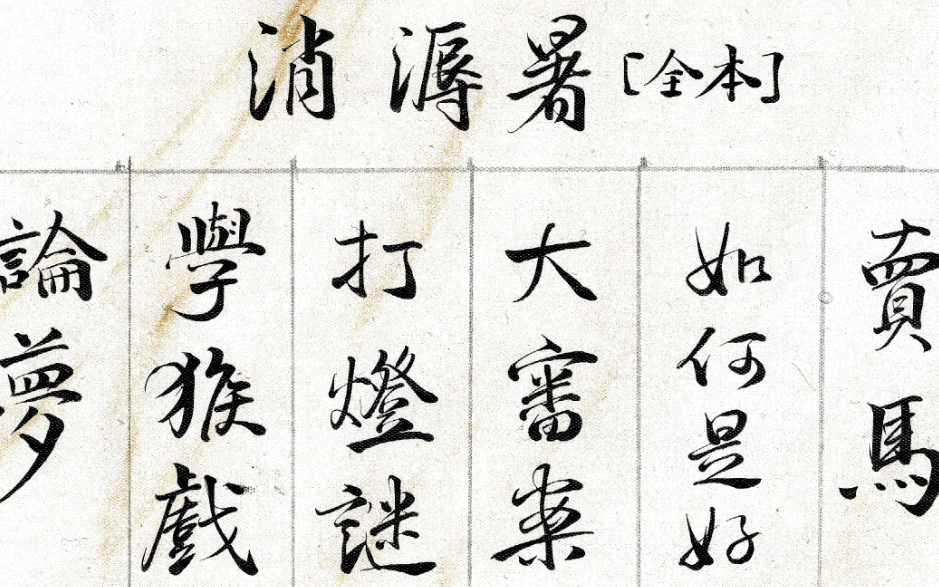 消溽暑[全本]
賣馬
如何是好
大審案
打燈謎
學猴戲
論夢